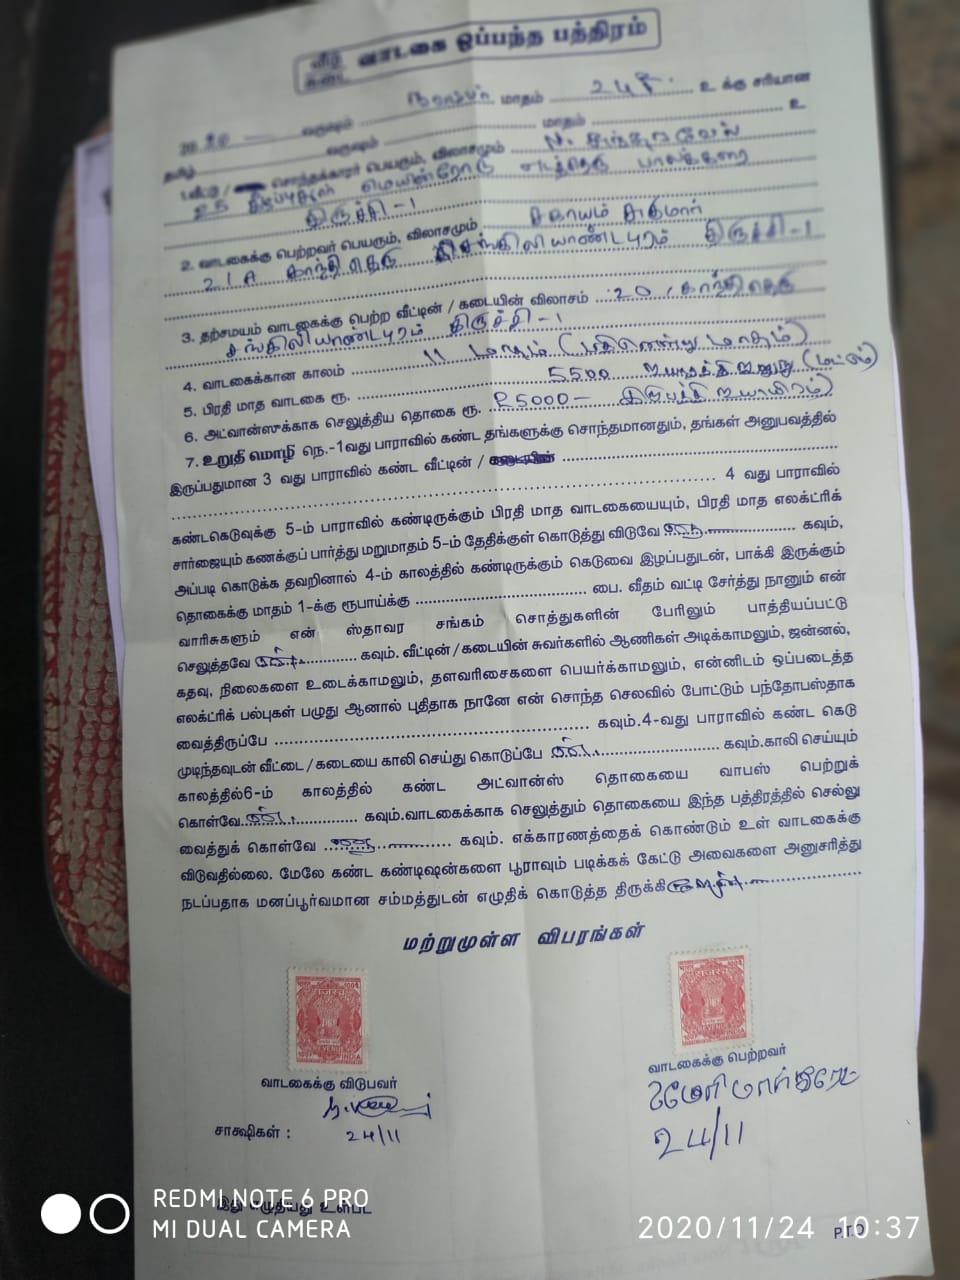 வீடு
கடை
வாடகை ஒப்பந்த பத்திரம்
2020 வருஷம் நவம்பர் மாதம் 24 உ க்கு சரியான
தமிழ் வருஷம் மாதம் உ
1.வீட்டு / சொந்தக்காரர் பெயரும், விலாசமும்
25 மெயின்ரோடு பாலக்கரை
திருச்சி-1
2. வாடகைக்கு பெற்றவர் பெயரும், விலாசமும் சகாயம்
21A காந்தி தெரு சங்கிலியாண்டபுரம் திருச்சி-1
3. தற்சமயம் வாடகைக்கு பெற்ற வீட்டின் / கடையின் விலாசம் 20, காந்திதெரு
சங்கிலியாண்டபுரம் திருச்சி-1
4. வாடகைக்கான காலம் 11 மாதம் (பதினொன்று மாதம்)
5. பிரதி மாத வாடகை ரூ. 5500 (மட்டும்)
6. அட்வான்ஸுக்காக செலுத்திய தொகை ரூ. 25000-
7. உறுதி மொழி நெ.-1வது பாராவில் கண்ட தங்களுக்கு சொந்தமானதும், தங்கள் அனுபவத்தில்
இருப்பதுமான 3 வது பாராவில் கண்ட வீட்டின் / கடையின்
4 வது பாராவில்
கண்டகெடுவுக்கு 5-ம் பாராவில் கண்டிருக்கும் பிரதி மாத வாடகையையும், பிரதி மாத எலக்ட்ரிக்
சார்ஜையும் கணக்குப் பார்த்து மறுமாதம் 5-ம் தேதிக்குள் கொடுத்து விடுவே கவும்,
அப்படி கொடுக்க தவறினால் 4-ம் காலத்தில் கண்டிருக்கும் கெடுவை இழப்பதுடன், பாக்கி இருக்கும்
தொகைக்கு மாதம் 1-க்கு ரூபாய்க்கு பை. வீதம் வட்டி சேர்த்து நானும் என்
வாரிசுகளும் என் ஸ்தாவர சங்கம் சொத்துகளின் பேரிலும் பாத்தியப்பட்டு
செலுத்தவே கவும். வீட்டின்/கடையின் சுவர்களில் ஆணிகள் அடிக்காமலும், ஜன்னல்,
கதவு, நிலைகளை உடைக்காமலும், தளவரிசைகளை பெயர்க்காமலும், என்னிடம் ஒப்படைத்த
எலக்ட்ரிக் பல்புகள் பழுது ஆனால் புதிதாக நானே என் சொந்த செலவில் போட்டும் பந்தோபஸ்தாக
வைத்திருப்பே கவும்.4-வது பாராவில் கண்ட கெடு
முடிந்தவுடன் வீட்டை/கடையை காலி செய்து கொடுப்பே கவும்.காலி செய்யும்
காலத்தில்6-ம் காலத்தில் கண்ட அட்வான்ஸ் தொகையை வாபஸ் பெற்றுக்
கொள்வே கவும்.வாடகைக்காக செலுத்தும் தொகையை இந்த பத்திரத்தில் செல்லு
வைத்துக் கொள்வே கவும். எக்காரணத்தைக் கொண்டும் உள் வாடகைக்கு
விடுவதில்லை. மேலே கண்ட கண்டிஷன்களை பூராவும் படிக்கக் கேட்டு அவைகளை அனுசரித்து
நடப்பதாக மனப்பூர்வமான சம்மத்துடன் எழுதிக் கொடுத்த திருக்கி
மற்றுமுள்ள விபரங்கள்
REVENUE
INDIA
வாடகைக்கு விடுபவர்
வாடகைக்கு பெற்றவர்
24/11
24/11
சாக்ஷிகள் :
இது எழுதியது உள்பட
P.T.O
REDMI NOTE 6 PRO
MI DUAL CAMERA
2020/11/24 10:37